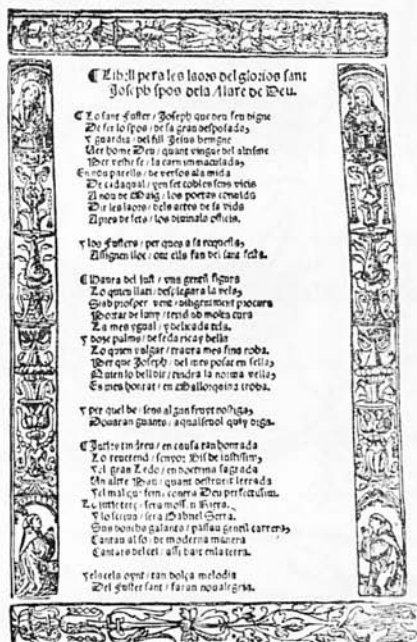 ¶ Libell per a les laors del glorios sant
Joseph spos dela Mare de Deu.
¶ Lo sant Fuster / Joseph que deu feu digne
De ser lo spos / de sa gran desposada,
y guardia / del fill Jesus benigne
Ver home Deu / quant vingue del altisme
Per vestir se / la carn immaculada,
En nou parells / de versos a la mida
De cadaqual / yen set cobles sens vicis
A nou de Maig / los poetas convida
Dir les laors / dels actes de sa vida
Apres de sets / los divinals officis.
y los Fusters / per ques a sa requesta,
Assignen lloc / ont ells fan del sant festa.
¶ Haura del just / una gentil figura
Lo quien llati / desplegara la vela,
Si ab prosper vent / diligentment procura
Portar de luny / ab molta cura
La mes ygual / y delicada tela.
y dose palms / de seda rica y bella
Lo quien vulgar / traura mes fina roba.
Per que Joseph / del mes posat en sella,
Quien lo bell dir / tindra la novella,
Es mes honrat / en Mallorquina troba.
y per quel be / sens algun fruyt nostiga,
Donaran guants / a qualsevol quey diga.
¶ Jutes tandreu / en causa tan honrada
Lo reverend / senyor Bisbe
y el gran Ledo / en doctrina sagrada
Un altre / quant destruit lerrada
y el mal que fem / contra Deu
Lo jutge terç / sera mossen Riera,
y lo scriva / sera Gabriel Serra.
Son bon cho galant / passau gentil carrera,
Cantau al so / de moderna manera
Cantats del cel / assi baix en la terra.
y el scela oynt / tan dolça melodia
Del Fuster sant / faran nou alegria.